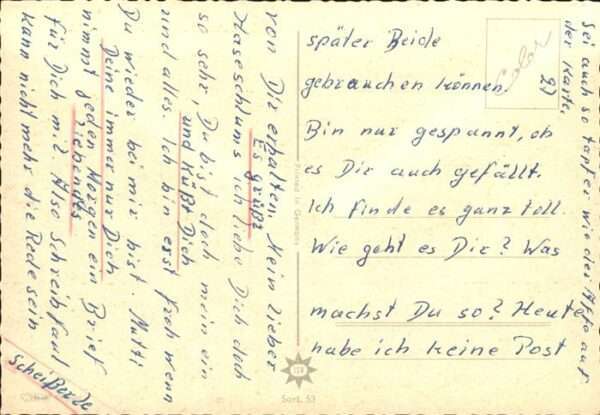 später Beide
gebrauchen können.
Bin nur gespannt, ob
es Dir auch gefällt.
Ich finde es ganz toll.
Wie geht es Dir? Was
machst Du so? Heute
habe ich keine Post
von Dir erhalten. Mein lieber
Haseschlums ich liebe Dich doch
so sehr, Du bist doch mein ein
und alles. Ich bin erst froh wenn
Du wieder bei mir bist. Mutti
nimmt jeden Morgen ein Brief
für Dich mit. Also Schreibfaul
kann nicht mehr die Rede sein
Es grüßt
und küßt Dich
Deine immer nur Dich
liebendes
Scheißerle
Sei auch so tapfer wie der Affe auf
der Karte.
Color
27
Printed in Germany
Sort. 53